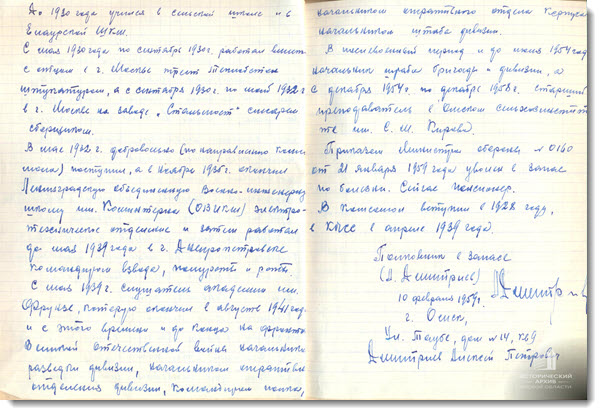 До 1930 года учился в сельской школе и в
Елаурской ШКМ.
С мая 1930 года по сентябрь 1930г. работал вместе
с отцом в г. Москве трест Теплобетон
штукатуром, а с сентября 1930г. по май 1932г.
в г. Москве на заводе „Стальмост" слесарем
сборщиком.
В мае 1932г. добровольно (по направлению Комсо
мола) поступил, а в ноябре 1935г. окончил
Ленинградскую объединенную Военно-инженерную
школу им. Коминтерна (ОВИКШ) электро-
техническое отделение и затем работал
до мая 1939 года в г. Днепропетровске
командиром взвода, и роты.
С мая 1939г. слушатель академии им.
Фрунзе, которую окончил в августе 1941 года
и с этого времени и до конца на фронтах
Великой отечественной войны начальником
разведки дивизии, начальником оперативного
отделения дивизии, командиром полка,
начальником оперативного отдела Корпуса
начальником штаба дивизии.
В послевоенный период и до июля 1954 года
начальник штаба бригады и дивизии, а
с декабря 1954г. по декабрь 1958г. старший
преподаватель в Омском сельхозинститу
те им. С. М. Кирова.
Приказом Министра обороны № 0160
от 21 января 1959 года уволен в запас
по болезни. Сейчас пенсионер.
В Комсомол вступил в 1928 году,
в КПСС в апреле 1939 года.
Полковник в запасе
(А. Дмитриев)
10 февраля 1959г.
г. Омск,
Ул. дом № 14, кв 9
Дмитриев Алексей Петрович
ИСТОРИЧЕСКИЙ
АРХИВ
ОМСКОЙ ОБЛАСТИ